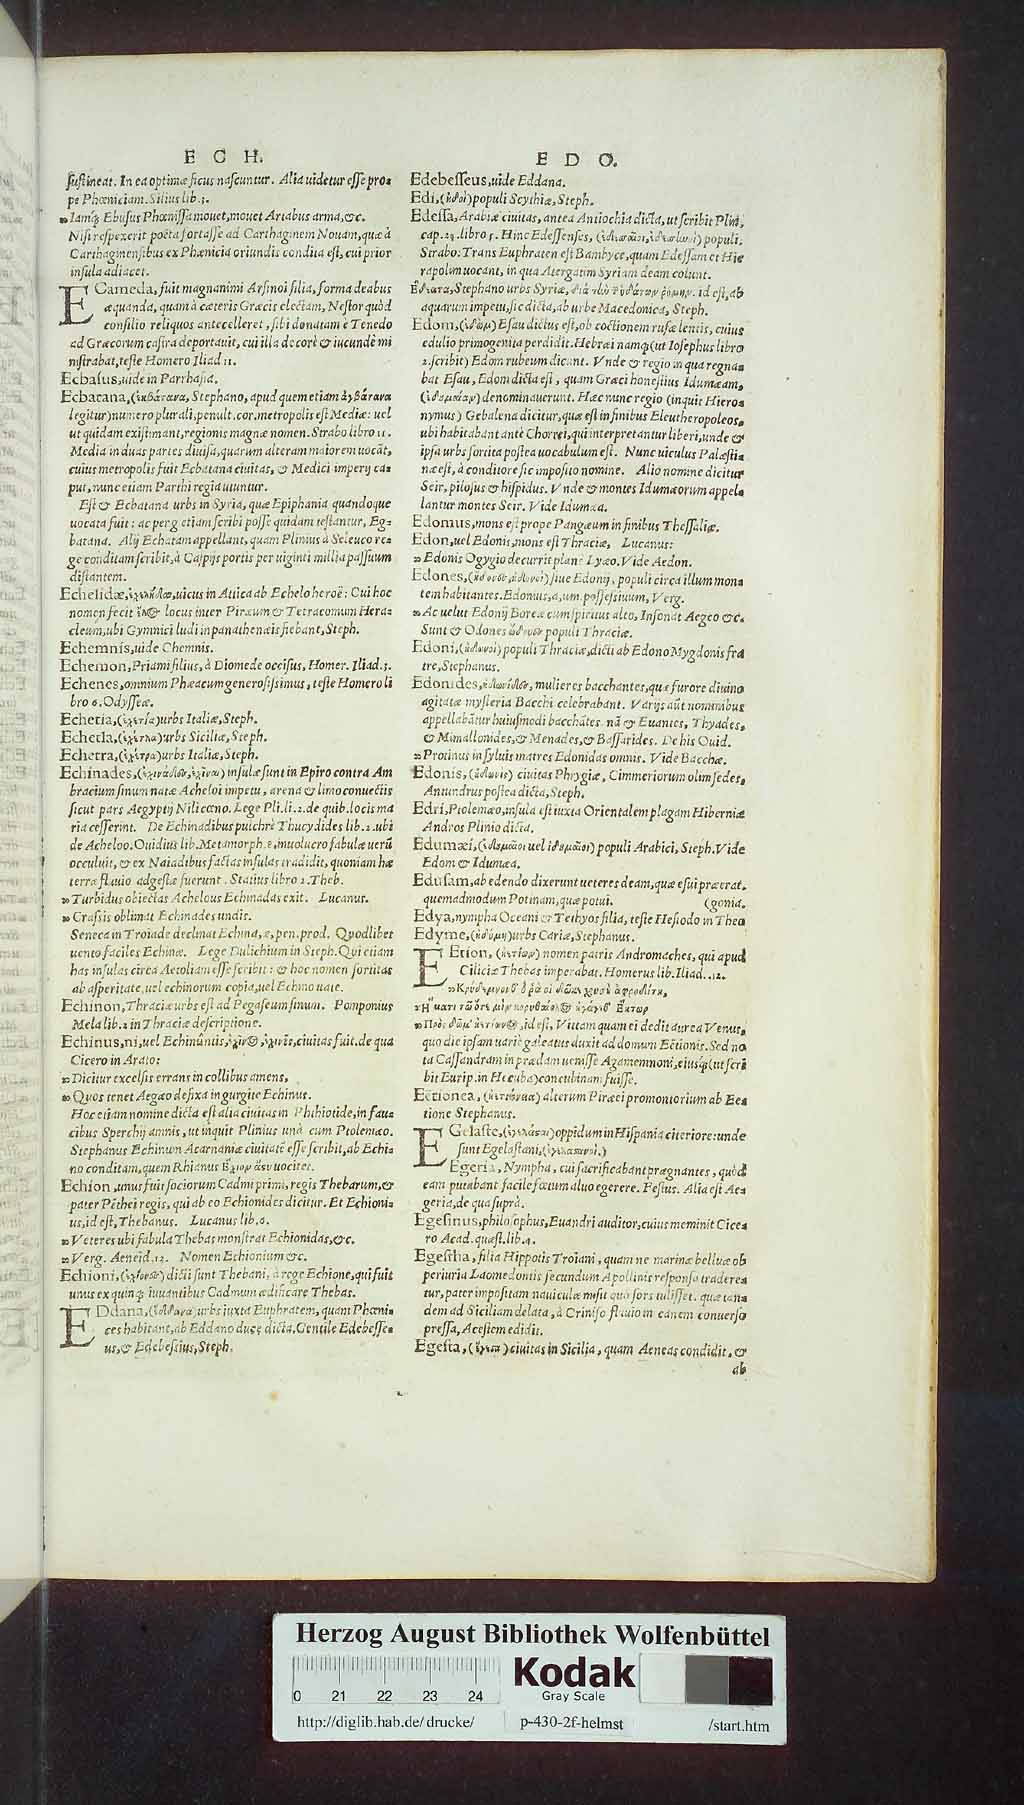 E C H.
sustineat. In ea optimæ ficus nascuntur. Alia uidetur esse pro=
pe Phœniciam. Silius lib. 3.
Iamq; Ebusus Phœnissa mouet, mouet Artabus arma, &c.
Nisi respexerit poëta fortasse ad Carthaginem Nouam, quæ à
Carthaginensibus ex Phœnicia oriundis condita est, cui prior
insula adiacet.
ECameda, fuit magnanimi Arsinoi filia, forma deabus
æquanda, quam à cæteris Græcis electam, Nestor quòd
consilio reliquos antecelleret, sibi donatam è Tenedo
ad Græcorum castra deportauit, cui illa decorè & iucundè mi
nistrabat, teste Homero Iliad 11.
Ecbasus, uide in Parrhasia.
Ecbatana, (ἐκβάτανα, Stephano, apud quem etiam ἀγβάτανα
legitur) numero plurali, penult. cor. metropolis est Mediæ: uel
ut quidam existimant, regionis magnæ nomen. Strabo libro 11.
Media in duas partes diuisa, quarum alteram maiorem uocāt,
cuius metropolis fuit Ecbatana ciuitas, & Medici imperij ca=
put, nunc etiam Parthi regia utuntur.
Est & Ecbatana urbs in Syria, quæ Epiphania quandoque
uocata fuit: ac per g etiam scribi posse quidam testantur, Eg=
batana. Alij Echatam appellant, quam Plinius à Seleuco re=
ge conditam scribit, à Caspijs portis per uiginti millia passuum
distantem.
Echelidæ, uicus in Attica ab Echelo heroë: Cui hoc
nomen fecit locus inter Piræum & Tetracomum Hera=
cleum, ubi Gymnici ludi in panathenæis fiebant, Steph.
Echemnis, uide Chemnis.
Echemon, Priami filius, à Diomede occisus, Homer. Iliad. 5.
Echenes, omnium Phæacum generosissimus, teste Homero li
bro 6. Odysseæ.
Echetia, (ἐχετία) urbs Italiæ, Steph.
Echetla, (ἐχέτλα) urbs Siciliæ, Steph.
Echetra, (ἐχέτρα) urbs Italiæ, Steph.
Echinades, (ἐχινάδες, ἐχῖναι) insulæ sunt in Epiro contra Am
bracium sinum natæ Acheloi impetu, arena & limo conuectis
sicut pars Aegypti Nili cœno. Lege Pli. li. 2. de quib. locis ma
ria cesserint. De Echinadibus pulchrè Thucydides lib. 2. ubi
de Acheloo. Ouidius lib. Metamorph. 8. inuolucro fabulæ uerū
occuluit, & ex Naiadibus factas insulas tradidit, quoniam hæ
terræ fluuio adgestæ fuerunt. Statius libro 2. Theb.
Turbidus obiectas Achelous Echinadas exit. Lucanus.
Crassis oblimat Echinades undis.
Seneca in Troiade declinat Echina, æ, pen. prod. Quodlibet
uento faciles Echinæ. Lege Dulichium in Steph. Qui etiam
has insulas circa Aetoliam esse scribit: & hoc nomen sortitas
ab asperitate, uel echinorum copia, uel Echino uate.
Echinon, Thraciæ urbs est ad Pegaseum sinum. Pomponius
Mela lib. 2 in Thraciæ descriptione.
Echinus, ni, uel Echinûntis, ciuitas fuit. de qua
Cicero in Arato:
Dicitur excelsis errans in collibus amens,
Quos tenet Aegæo defixa in gurgite Echinus.
Hoc etiam nomine dicta est alia ciuitas in Phthiotide, in fau=
cibus Sperchij amnis, ut inquit Plinius unà cum Ptolemæo.
Stephanus Echinum Acarnaniæ ciuitatē esse scribit, ab Echi=
no conditam, quem Rhianus uocitet.
Echion, unus fuit sociorum Cadmi primi, regis Thebarum, &
pater Pēthei regis, qui ab eo Echionides dicitur. Et Echioni=
us, id est, Thebanus. Lucanus lib. 6.
Veteres ubi fabula Thebas monstrat Echionidas, &c.
Verg. Aeneid. 12. Nomen Echionium &c.
Echioni, dicti sunt Thebani, à rege Echione, qui fuit
unus ex quinq; iuuantibus Cadmum ædificare Thebas.
EDdana, (ἔδδανα) urbs iuxta Euphratem, quam Phœni=
ces habitant, ab Eddano duce dicta. Gentile Edebesse=
us, & Edebessius, Steph.
E D O.
Edebesseus, uide Eddana.
Edi, (ἠδοί) populi Scythiæ, Steph.
Edessa, Arabiæ ciuitas, antea Antiochia dicta, ut scribit Plin.
cap. 24. libro 5. Hinc Edessenses, populi.
Strabo: Trans Euphraten est Bambyce, quam Edessam et Hie
rapolim uocant, in qua Atergatim Syriam deam colunt.
Ἔδεσσα, Stephano urbs Syriæ, διὰ τὴν τῶν ὑδάτων ῥύμην. id est, ab
aquarum impetu, sic dicta, ab urbe Macedonica, Steph.
Edom, (ἐδώμ) Esau dictus est, ob coctionem rufæ lentis, cuius
edulio primogenita perdidit. Hebræi namq; (ut Iosephus libro
2. scribit) Edom rubeum dicunt. Vnde & regio in qua regna=
bat Esau, Edom dicta est, quam Græci honestius Idumæam,
(ἰδουμαίαν) denominauerunt. Hæc nunc regio (inquit Hiero=
nymus) Gebalena dicitur, quæ est in finibus Eleutheropoleos,
ubi habitabant antè Chorræi, qui interpretantur liberi, unde &
ipsa urbs sortita postea uocabulum est. Nunc uiculus Palæsti=
næ est, à conditore sic imposito nomine. Alio nomine dicitur
Seir, pilosus & hispidus. Vnde & montes Idumæorum appel=
lantur montes Seir. Vide Idumæa.
Edonius, mons est prope Pangæum in finibus Thessaliæ.
Edon, uel Edonis, mons est Thraciæ, Lucanus:
Edonis Ogygio decurrit plena Lyæo. Vide Aedon.
Edones, siue Edonij, populi circa illum mon=
tem habitantes. Edonius, a, um. possessiuum, Verg.
Ac uelut Edonij Boreæ cum spiritus alto, Insonat Aegeo &c.
Sunt & Odones ὤδονες populi Thraciæ.
Edoni, (ἠδωνοί) populi Thraciæ, dicti ab Edono Mygdonis fra
tre, Stephanus.
Edonides, ἠδωνίδες, mulieres bacchantes, quæ furore diuino
agitatæ mysteria Bacchi celebrabant. Varijs aūt nominibus
appellabātur huiusmodi bacchātes. nā & Euantes, Thyades,
& Mimallonides, & Menades, & Bassarides. De his Ouid.
Protinus in syluis matres Edonidas omnis. Vide Bacchæ.
Edonis, (ἠδωνίς) ciuitas Phrygiæ, Cimmeriorum olim sedes,
Antandrus postea dicta, Steph.
Edri, Ptolemæo, insula est iuxta Orientalem plagam Hiberniæ
Andros Plinio dicta.
Edumæi, (ἐδουμαῖοι uel ἰδουμαῖοι) populi Arabici, Steph. Vide
Edom & Idumæa.
Edusam, ab edendo dixerunt ueteres deam, quæ esui præerat.
quemadmodum Potinam, quæ potui. (gonia.
Edya, nympha Oceani & Tethyos filia, teste Hesiodo in Theo
Edyme, (ἠδύμη) urbs Cariæ, Stephanus.
EEtion, (ἠετίων) nomen patris Andromaches, qui apud
Ciliciæ Thebas imperabat. Homerus lib. Iliad. .12.
Κρήδεμνόν θ' ὅ ῥά οἱ δῶκε χρυσῆ ἀφροδίτη,
Ἤματι τῶ ὅτε μιν κορυθαίολος ἠγάγεθ' Ἕκτωρ
id est, Vittam quam ei dedit aurea Venus,
quo die ipsam uariè galeatus duxit ad domum Eëtionis. Sed no
ta Cassandram in prædam uenisse Agamemnoni, eiusq; (ut scri
bit Eurip. in Hecuba) concubinam fuisse.
Eëtionea, (ἠετιόνεια) alterum Piræei promontorium ab Ee=
tione Stephanus.
EGelaste, oppidum in Hispania citeriore: unde
sunt Egelastani,
Egeria, Nympha, cui sacrificabant prægnantes, quòd
eam putabant facile fœtum aluo egerere. Festus. Alia est Ae=
geria, de qua suprà.
Egesinus, philosophus, Euandri auditor, cuius meminit Cice=
ro Acad. quæst. lib. 4.
Egestha, filia Hippotis Troiani, quam ne marinæ belluæ ob
periuria Laomedontis secundum Apollinis responsa tradere=
tur, pater impositam nauiculæ misit quò fors tulisset. quæ tan=
dem ad Siciliam delata, à Criniso fluuio in canem conuerso
pressa, Acestem edidit.
Egesta, (ἔγεστα) ciuitas in Sicilia, quam Aeneas condidit, &
ab
Herzog August Bibliothek Wolfenbüttel
0 21 22 23 24
Kodak
Gray Scale
http://diglib.hab.de/drucke/ p-430-2f-helmst /start.htm